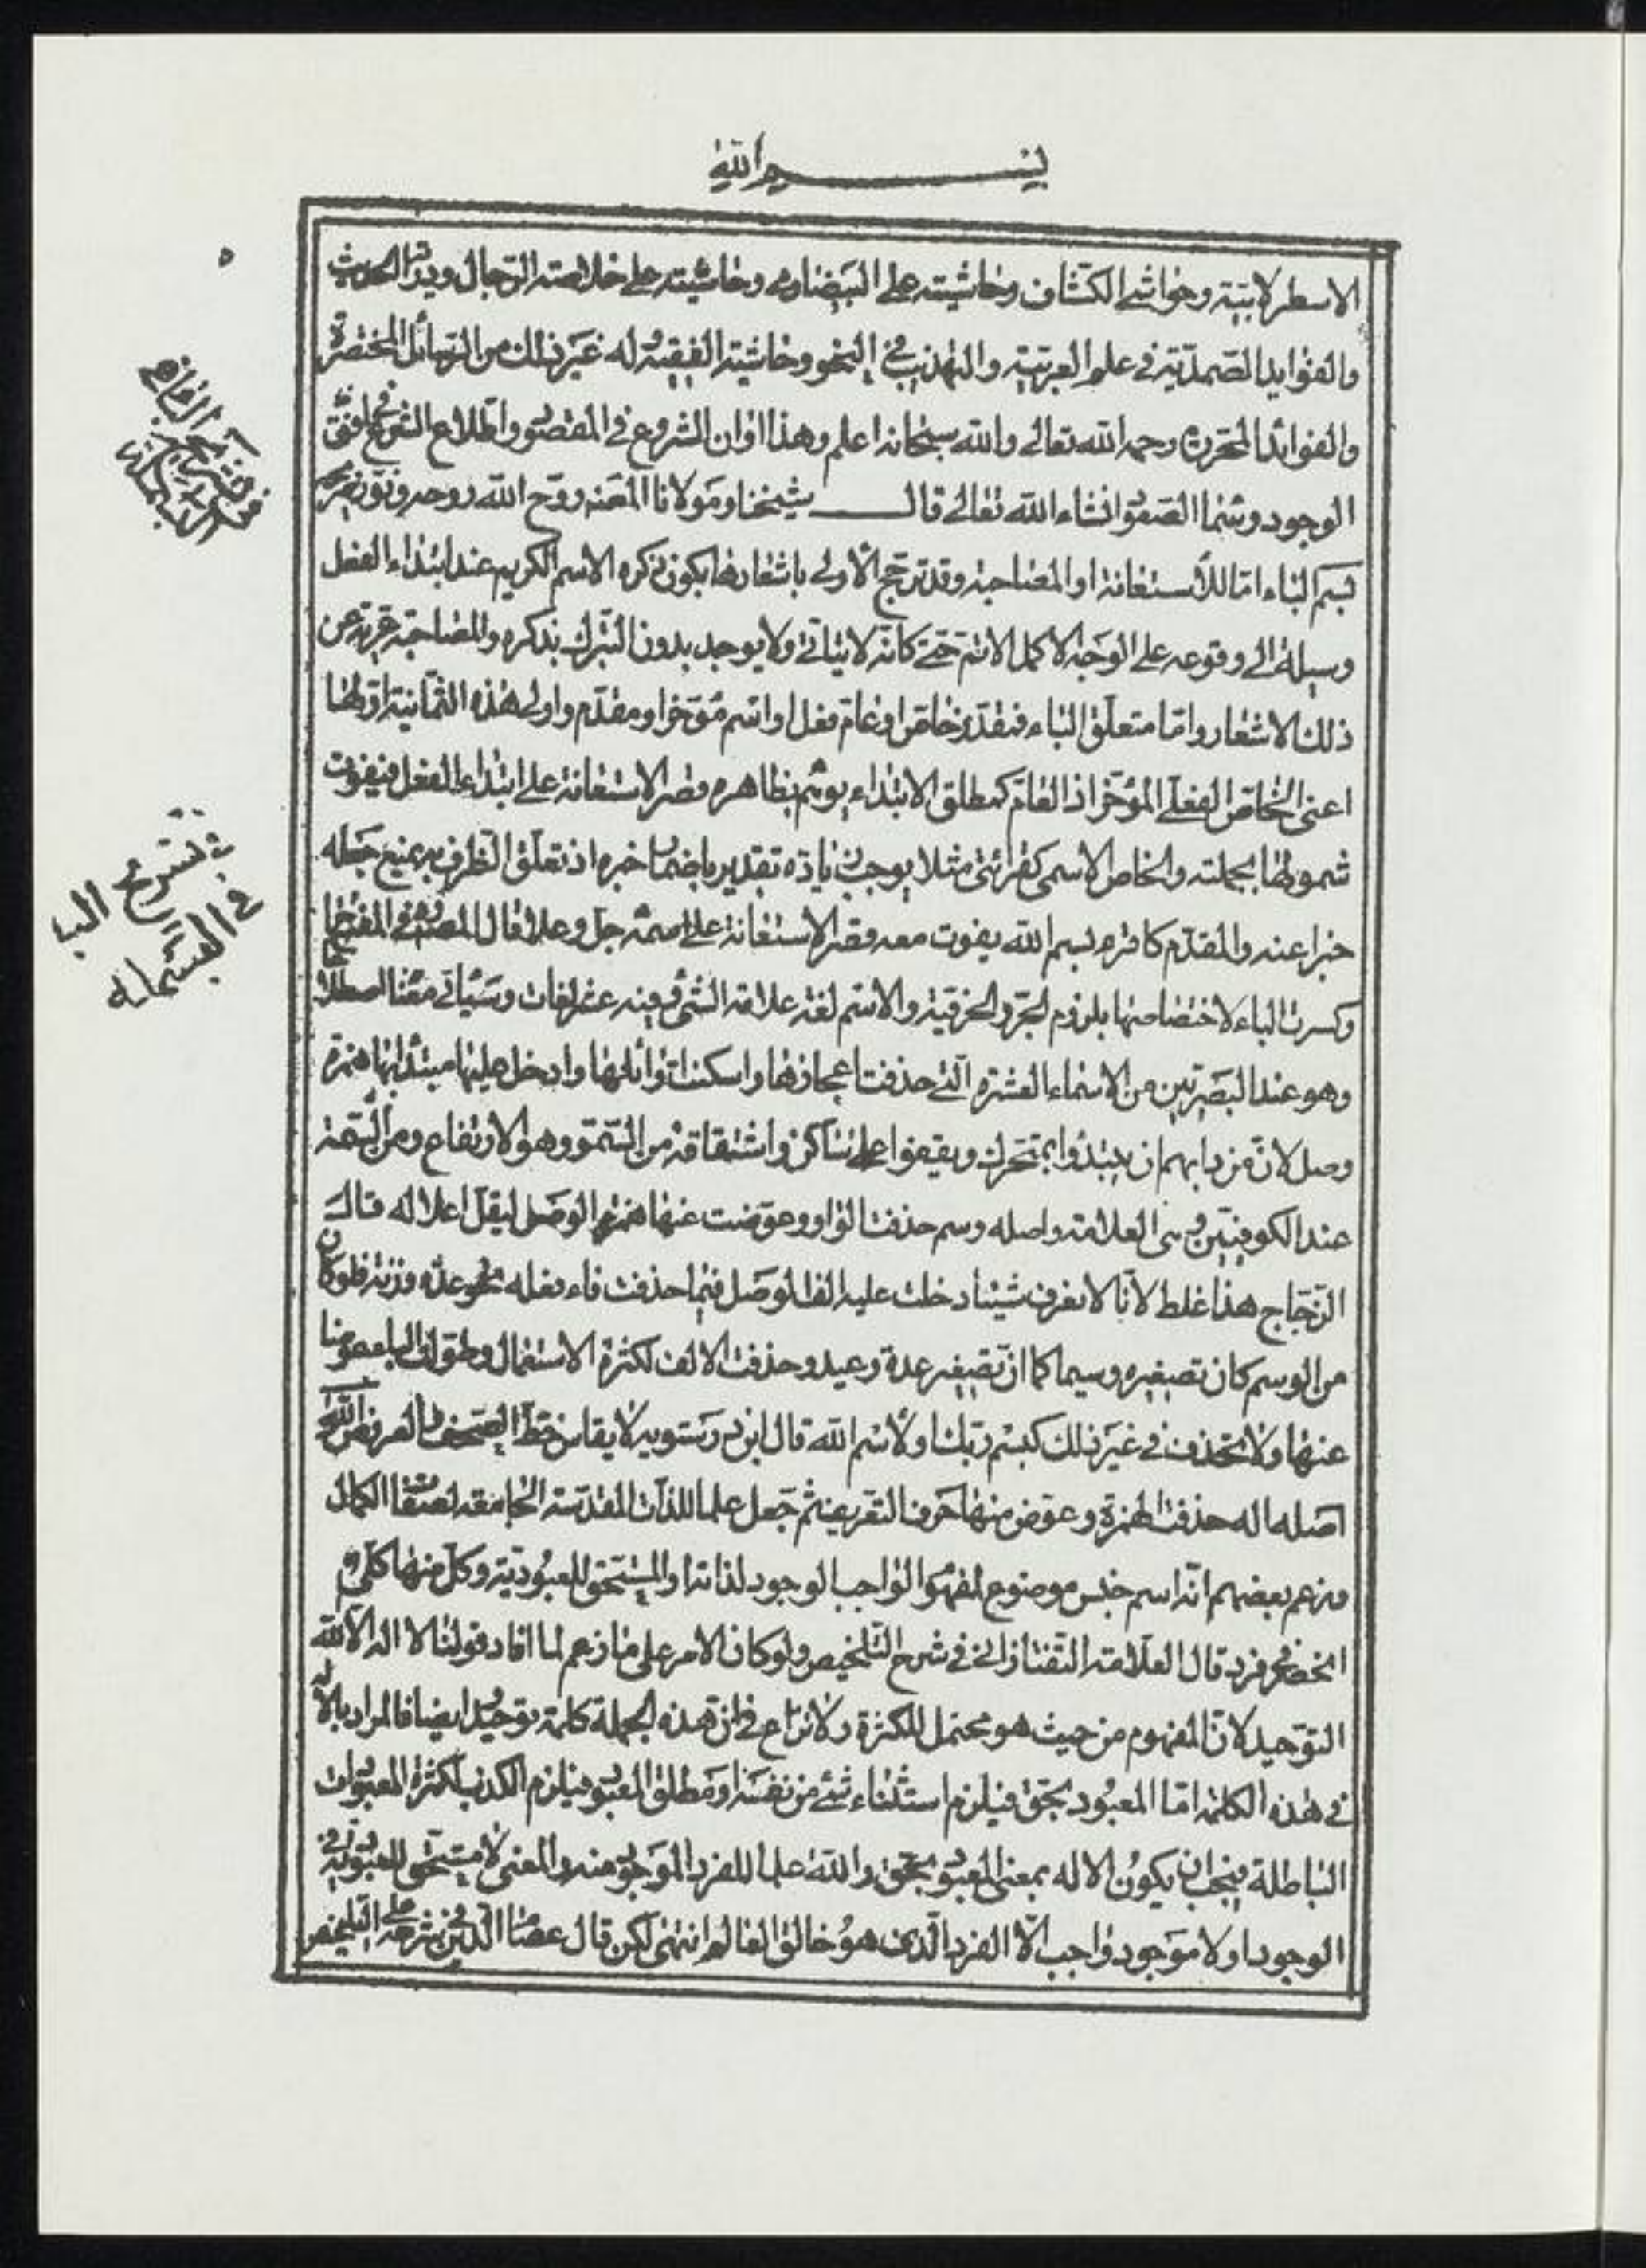 بسم الله
الاسطرلابية وحواشي الكشاف وحاشيته على البيضاوي وحاشيته على خلاصة الرجال ودراية الحديث
والفوايد الصمدية في علم العربية والتهذيب في النحو وحاشية الفقيه له غير ذلك من الرسائل المختصرة
والفوائد المحررة رحمه الله تعالى والله سبحانه اعلم وهذا اوان الشروع في المقصود واطلاع الشموع في افق
الوجود وشما الصفو انشاء الله تعالى قال شيخنا ومولانا المصنف روح الله روحه ونور ضريحه
بسم الباء اما للاستعانة او المصاحبة وقد ترجح الاولى باشعارها بكون ذكره الاسم الكريم عند ابتداء الفعل
وسيلة الى وقوعه على الوجه الاكمل الاتم حتى كانه لا يتاتى ولا يوجد بدون التبرك بذكره والمصاحبة عرية عن
ذلك الاشعار واما متعلق الباء فنقدر خاص او عام فعل او اسم مؤخر او مقدم واولى هذه الثمانية اولها
اعنى الخاص الفعلى المؤخر اذ العام كمطلق الابتداء يوهم بظاهره قصر الاستعانة على ابتداء الفعل فيفوت
شمولها بجملته والخاص الاسمى كقرائتى مثلا يوجب زيادة تقدير باضمار خبره اذ تعلق الظرف به يمنع جعله
خبرا عنه والمقدم كاقرء بسم الله يفوت معه قصر الاستعانة على اسمه جل وعلا قال المصنف في المفتاح
وكسرت الباء لاختصاصها بلزوم الجر والحرفية والاسم لغة علامة الشئ وفيه عشر لغات وسياتي معنا اصطلاحا
وهو عند البصريين من الاسماء العشرة التي حذفت اعجازها واسكنت اوائلها وادخل عليها مبتدا بها همزة
وصل لان من دابهم ان يبتدؤا بمتحرك ويقفوا على ساكن واشتقاقه من السمو وهو الارتفاع ومن السمة
عند الكوفيين وهي العلامة واصله وسم حذفت الواو وعوضت عنها همزة الوصل ليقل اعلاله قال
الزجاج هذا غلط لانا لا نعرف شيئا دخلت عليه الف الوصل فيما حذفت فاء فعله نحو عدة وزنة فلو كان
من الوسم كان تصغيره وسيما كما ان تصغير عدة وعيد وحذفت الالف لكثرة الاستعمال وطولت الباء عوضا
عنها ولا تحذف في غير ذلك كبسم ربك ولاسم الله قال ابن درستويه لا يقاس خط المصحف والعروض الله
اصله اله حذفت الهمزة وعوض منها حرف التعريف ثم جعل علما للذات المقدسة الجامعة لصفات الكمال
وزعم بعضهم انه اسم جنس موضوع لمفهوم الواجب الوجود لذاته او المستحق للعبودية وكل منهما كلي
انحصر في فرد قال العلامة التفتازاني في شرح التلخيص ولو كان الامر على ما زعم لما افاد قولنا لا اله الا الله
التوحيد لان المفهوم من حيث هو محتمل للكثرة ولا نزاع في ان هذه الجملة كلمة توحيد ايضا فالمراد بالاله
في هذه الكلمة اما المعبود بحق فيلزم استثناء شئ من نفسه او مطلق المعبود فيلزم الكذب لكثرة المعبودات
الباطلة فيجب ان يكون الاله بمعنى المعبود بحق والله علما للفرد الموجود منه والمعنى لا مستحق للعبودية في
الوجود او لا موجود واجب الا الفرد الذى هو خالق العالم انتهى لكن قال عصام الدين في شرحه على التلخيص
في شروع البا
في البسمله